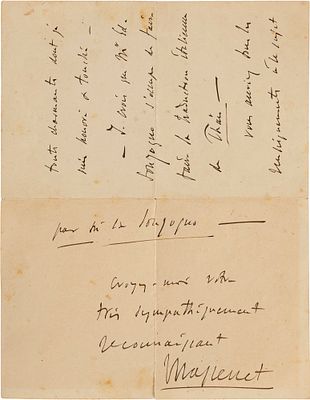 toute charmante dont je
suis honoré & touché –
– Je crois que Mr Ed.
Sonzogno s'occupe de faire
faire la traduction italienne
de Thaïs —
vous auriez tous les
renseignements à ce sujet
par Mr Ed. Sonzogno —
croyez-moi votre
très sympathiquement
reconnaissant
Massenet